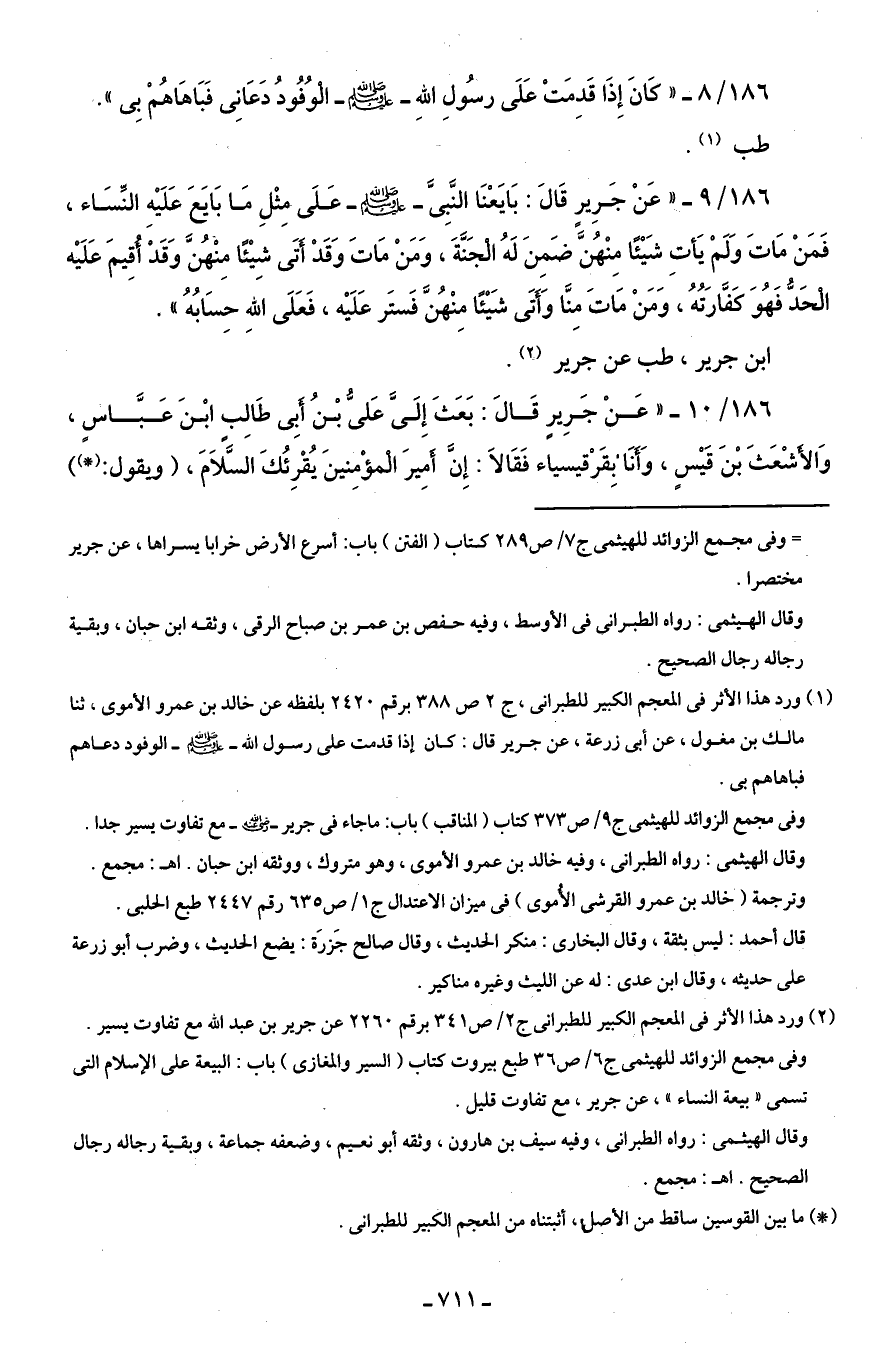 ٨/١٨٦ ـ « كَانَ إِذَا قَدِمَتْ عَلَى رسُولِ اللهِ ـ ﷺ ـ الْوُفُودُ دَعَانِى فَبَاهَاهُمْ بِى » .
طب (١) .
٩/١٨٦ ـ « عَنْ جَرِيرٍ قَالَ : بَايَعْنَا النَّبِىَّ ـ ﷺ ـ عَلَى مِثْلِ مَا بَايَعَ عَلَيْهِ النِّسَاء ،
فَمَنْ مَاتَ وَلَمْ يَأت شَيْئًا مِنْهُنَّ ضَمِنَ لَهُ الْجَنَّةَ ، وَمَنْ مَاتَ وَقَدْ أَتَى شَيْئًا مِنْهُنَّ وَقَدْ أُقِيمَ عَلَيْهِ
الْحَدُّ فَهُوَ كَفَّارَتُهُ ، وَمَنْ مَاتَ مِنَّا وَأَتَى شَيْئًا مِنْهُنَّ فَستَر عَلَيْهِ ، فَعَلَى اللهِ حِسَابُهُ » .
ابن جرير ، طب عن جرير (٢) .
١٠/١٨٦ ـ « عَـنْ جَرِيرٍ قَـالَ : بَعَثَ إِلَىَّ عَلىُّ بْنُ أَبِى طَالِبٍ ابْنَ عَبَّـاسٍ ،
وَالأَشْعَثَ بْنَ قَيْسٍ ، وَأَنَا بِقَرْقِيسياء فَقَالاَ : إِنَّ أَمِيرَ الْمؤْمِنينَ يُقْرِئُكَ السَّلاَمَ ، ( ويقول:(*))
= وفى مجمع الزوائد للهيثمى ج٧/ ص٢٨٩ كتاب ( الفتن ) باب: أسرع الأرض خرابا يسراها ، عن جرير
مختصرا .
وقال الهيثمى : رواه الطبرانى فى الأوسط ، وفيه حفص بن عمر بن صباح الرقى ، وثقه ابن حبان ، وبقية
رجاله رجال الصحيح .
(١) ورد هذا الأثر فى المعجم الكبير للطبرانى ، ج ٢ ص ٣٨٨ برقم ٢٤٢٠ بلفظه عن خالد بن عمرو الأموى ، ثنا
مالك بن مغول ، عن أبى زرعة ، عن جرير قال : كان إذا قدمت على رسول الله ـ ﷺ ـ الوفود دعاهم
فباهاهم بى .
وفى مجمع الزوائد للهيثمى ج٩/ ص٣٧٣ كتاب ( المناقب ) باب: ماجاء فى جرير ـ رضي الله عنه ـ مع تفاوت يسير جدا .
وقال الهيثمى : رواه الطبرانى ، وفيه خالد بن عمرو الأموى ، وهو متروك ، ووثقه ابن حبان . اهـ : مجمع .
وترجمة ( خالد بن عمرو القرشى الأُموى ) فى ميزان الاعتدال ج١/ ص٦٣٥ رقم ٢٤٤٧ طبع الحلبى .
قال أحمد : ليس بثقة ، وقال البخارى : منكر الحديث ، وقال صالح جَزَرَة : يضع الحديث ، وضرب أبو زرعة
على حديثه ، وقال ابن عدى : له عن الليث وغيره مناكير .
(٢) ورد هذا الأثر فى المعجم الكبير للطبرانى ج٢/ ص٣٤١ برقم ٢٢٦٠ عن جرير بن عبد الله مع تفاوت يسير .
وفى مجمع الزوائد للهيثمى ج٦/ ص٣٦ طبع بيروت كتاب ( السير والمغازى ) باب : البيعة على الإسلام التى
تسمى « بيعة النساء » ، عن جرير ، مع تفاوت قليل .
وقال الهيثمى : رواه الطبرانى ، وفيه سيف بن هارون ، وثقه أبو نعيم ، وضعفه جماعة ، وبقية رجاله رجال
الصحيح . اهـ : مجمع .
(*) ما بين القوسين ساقط من الأصل، أثبتناه من المعجم الكبير للطبرانى .
ـ ٧١١ ـ